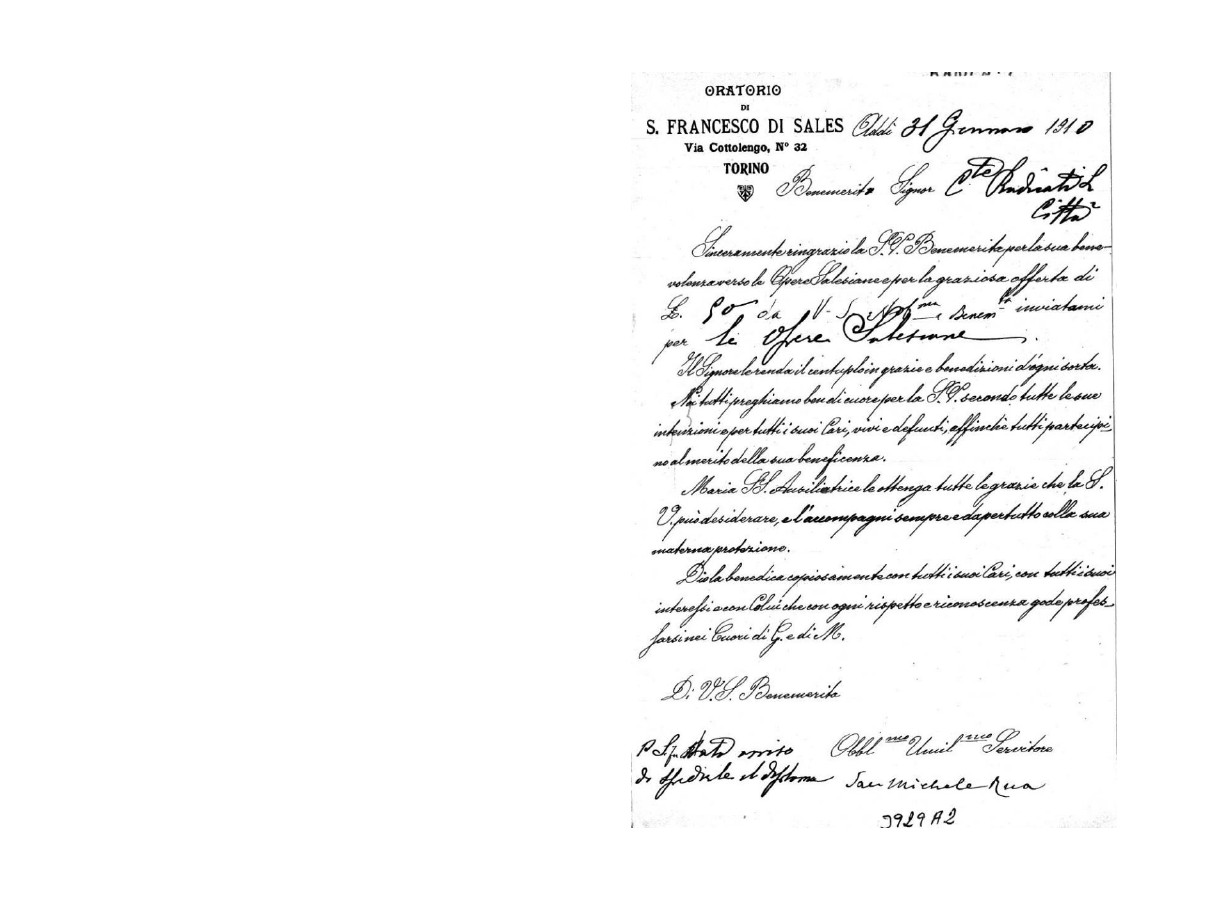 ORATORIO
DI
S. FRANCESCO DI SALES
Via Cottolengo, Nº 32
TORINO
Addì 31 Gennaro 1910
Benemerito Signor Cte Radicati
Città
Sinceramente ringrazio la S. V. Benemerita per la sua bene-
volenza verso le Opere Salesiane e per la graziosa offerta di
L. 50 da V. S. e Benem inviatami
per le Opere Salesiane.
Il Signore le renda il centuplo in grazie e benedizioni d'ogni sorta.
Noi tutti preghiamo ben di cuore per la S. V. secondo tutte le sue
intenzioni e per tutti i suoi Cari, vivi e defunti, affinchè tutti partecipi-
no al merito della sua beneficenza.
Maria SS. Ausiliatrice le ottenga tutte le grazie che la S.
V. può desiderare, e l'accompagni sempre e dapertutto colla sua
materna protezione.
Dio la benedica copiosamente con tutti i suoi Cari, con tutti i suoi
interessi e con Colui che con ogni rispetto e riconoscenza gode profes-
sarsi nei Cuori di G. e di M.
Di V. S. Benemerita
Obbl.mo Umil.mo Servitore
P. S. avviso
di spedirle il diploma
Sac Michele Rua
3929 A2